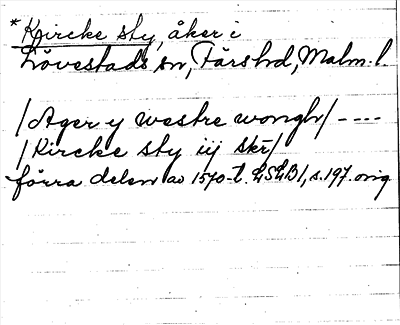 *Kircke sty, åker i
Lövestads sn, Färs hd, Malm. l.
/Ager y westre wongh/ ----
/Kircke sty iij skr/
förra delen av 1570-t. LSLB/, s. 197. orig